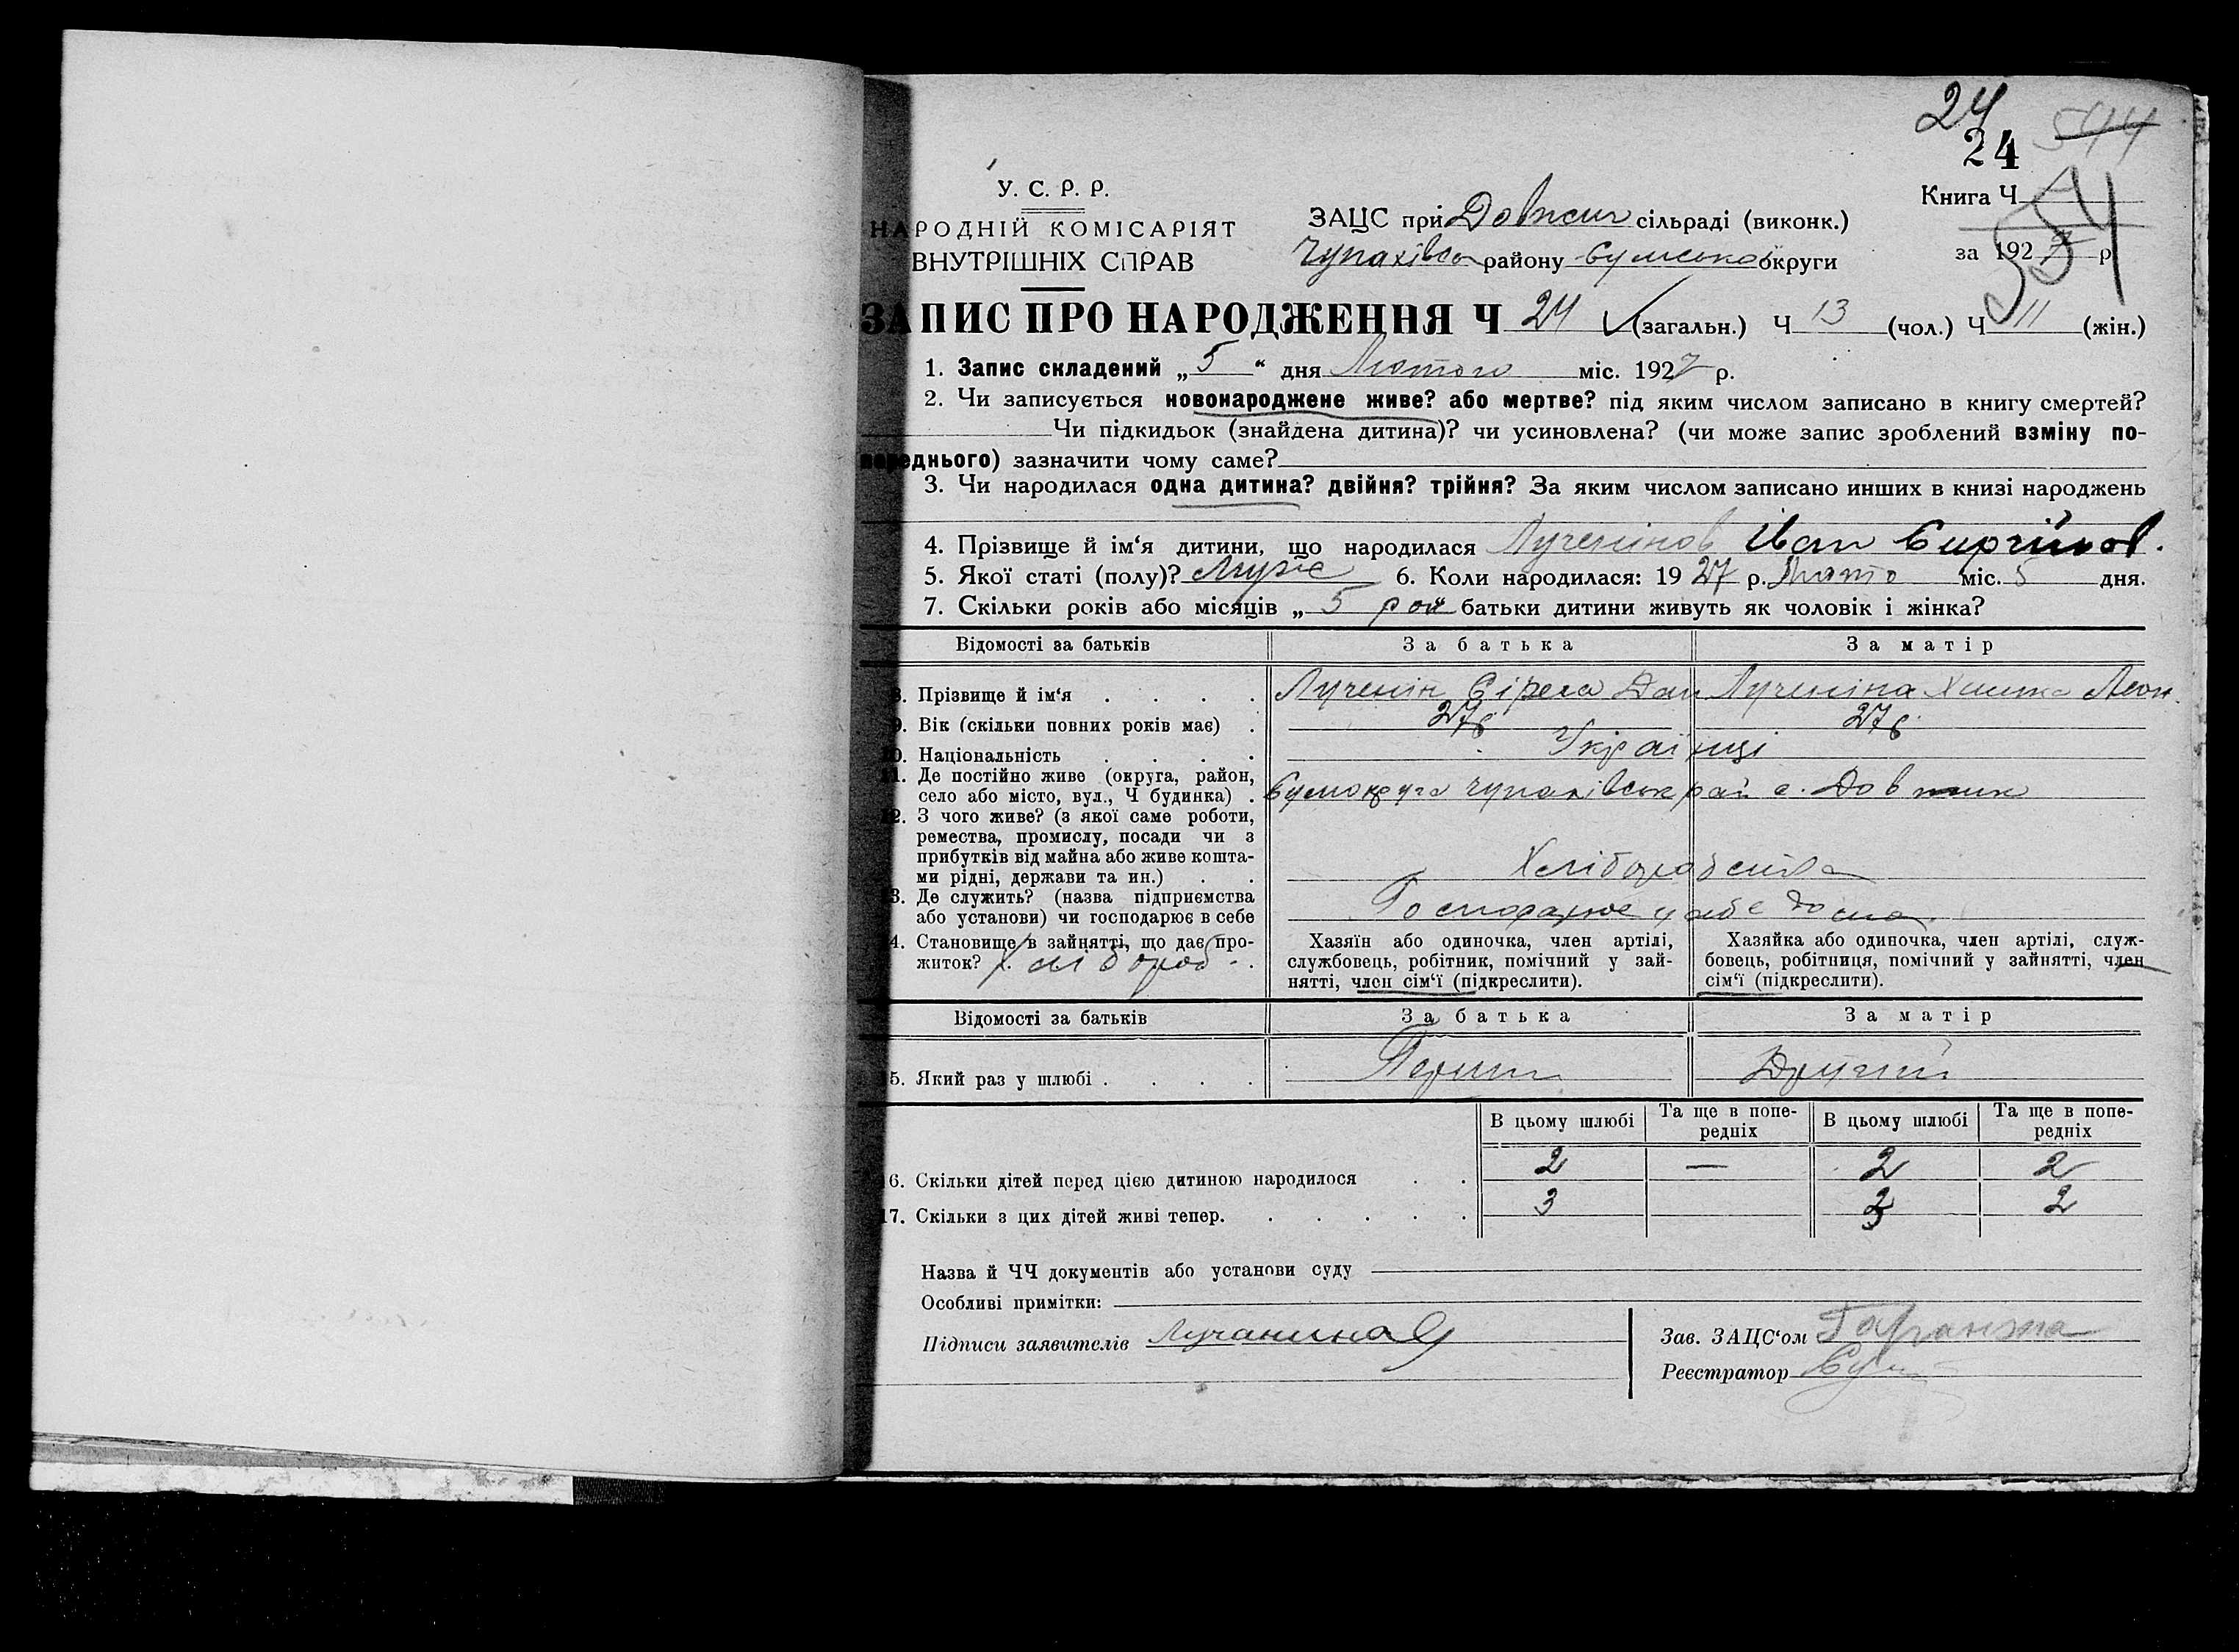 24
24 544
У. С. Р. Р.
НАРОДНІЙ КОМІСАРІЯТ
ВНУТРІШНІХ СПРАВ
ЗАЦС при Довжик сільраді (виконк.)
Чупахівсь району Сумсько округи
Книга Ч
за 1927 р
ЗАПИС ПРО НАРОДЖЕННЯ Ч 24 (загальн.) Ч 13 (чол.) Ч 11 (жін.)
1. Запис складений „ 5 “ дня Лютого міс. 1927 р.
2. Чи записується новонароджене живе? або мертве? під яким числом записано в книгу смертей?
Чи підкидьок (знайдена дитина)? чи усиновлена? (чи може запис зроблений взміну по-
переднього) зазначити чому саме?
3. Чи народилася одна дитина? двійня? трійня? За яким числом записано инших в книзі народжень
4. Прізвище й ім‘я дитини, що народилася Лученінов Іван Сиргійов.
5. Якої статі (полу)? Муже 6. Коли народилася: 1927 р. Люто міс. 5 дня.
7. Скільки років або місяців „ 5 рок“ батьки дитини живуть як чоловік і жінка?
Відомості за батьків За батька За матір
8. Прізвище й ім‘я . . . . Лученін Сірега Дан Лученіна Леон
9. Вік (скільки повних років має) . 27 р. 27 р.
10. Національність . . . . Українці
11. Де постійно живе (округа, район,
село або місто, вул., Ч будинка) . Сумокруга чупахівськ рай с. Довжик
12. З чого живе? (з якої саме роботи,
ремества, промислу, посади чи з
прибутків від майна або живе кошта-
ми рідні, держави та ин.) . . Хліборобства
13. Де служить? (назва підприємства
або установи) чи господарює в себе Господарює у себе дома.
14. Становище в зайнятті, що дає про-
житок? Хлібороб
Хазяїн або одиночка, член артілі,
службовець, робітник, помічний у зай-
нятті, член сім‘ї (підкреслити).
Хазяйка або одиночка, член артілі, служ-
бовець, робітниця, помічний у зайнятті, член
сім‘ї (підкреслити).
Відомості за батьків За батька За матір
15. Який раз у шлюбі . . . . Перший Другий
В цьому шлюбі Та ще в попе-
редніх В цьому шлюбі Та ще в попе-
редніх
16. Скільки дітей перед цією дитиною народилося . . 2 — 2 2
17. Скільки з цих дітей живі тепер. . . . . . 3 3 2
Назва й ЧЧ документів або установи суду
Особливі примітки:
Підписи заявителів Лучанина
Зав. ЗАЦС‘ом
Реєстратор